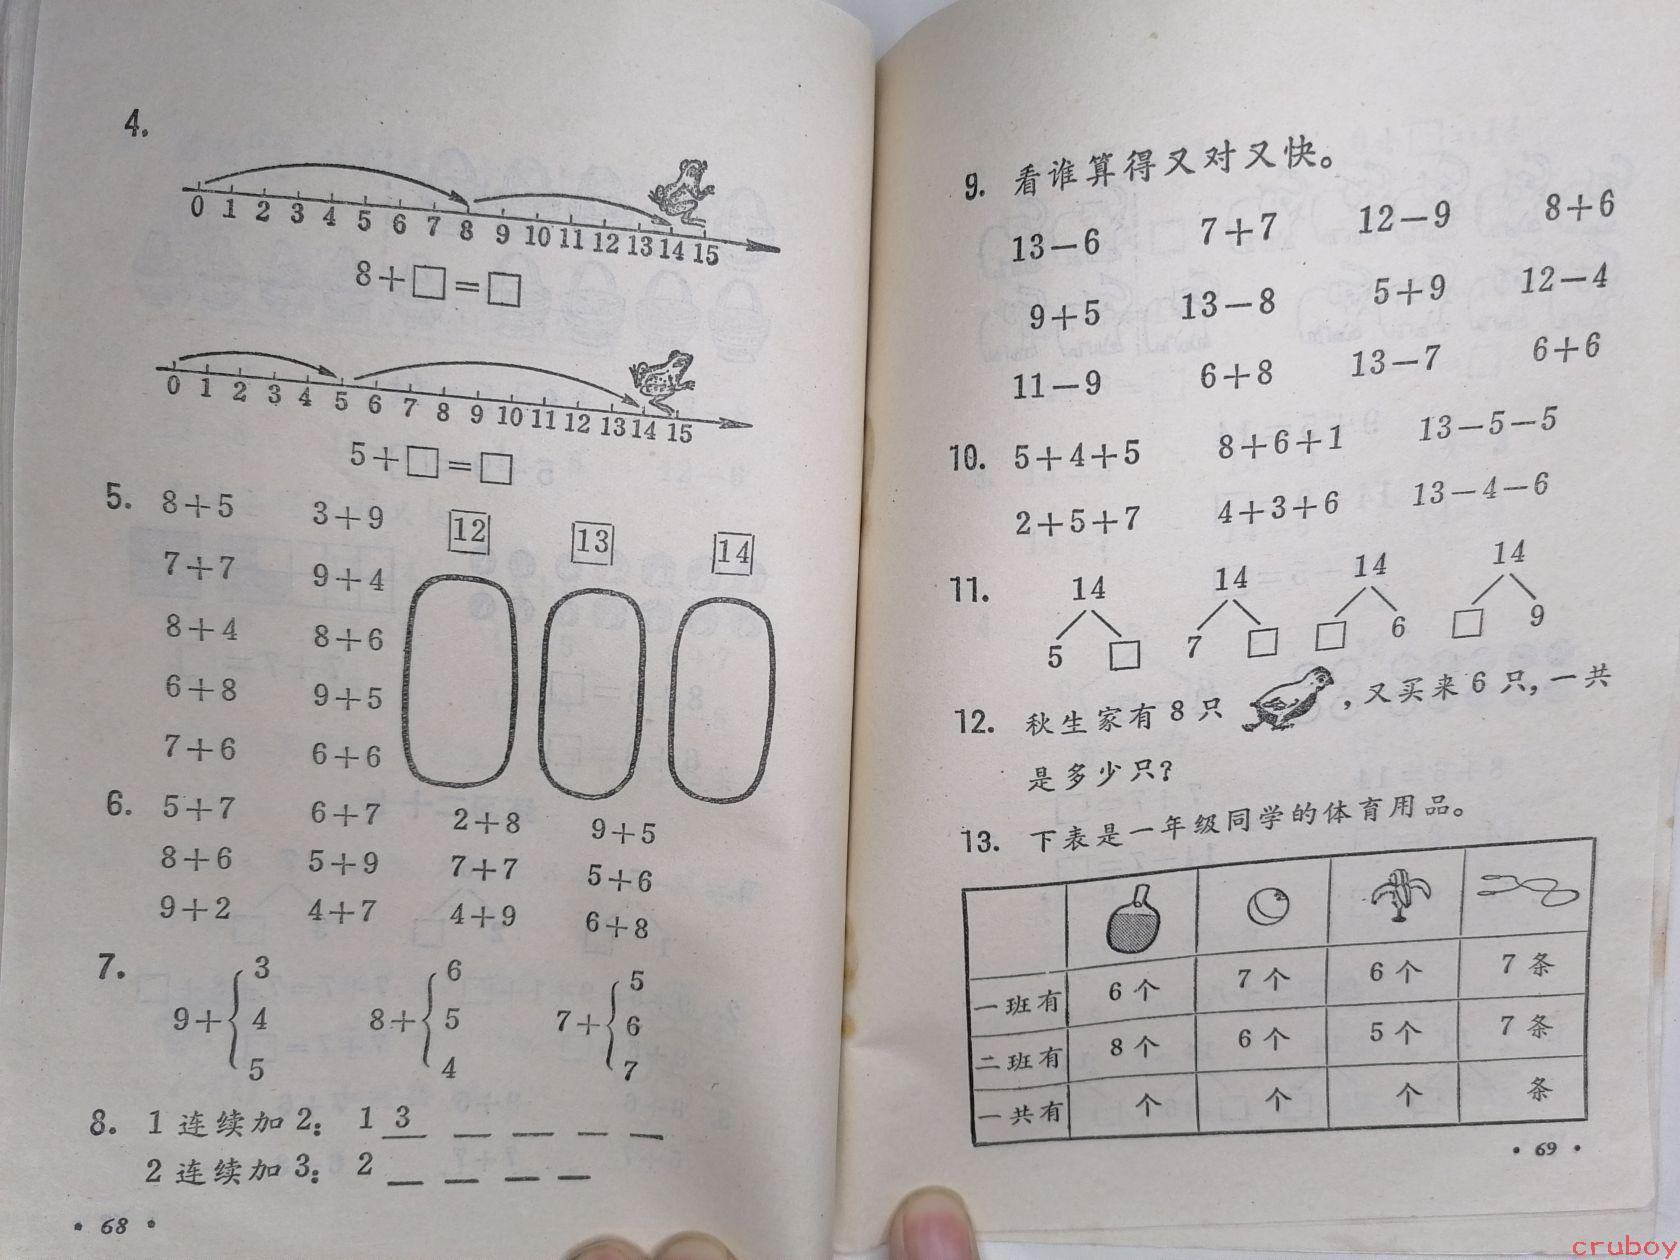 4.
0 1 2 3 4 5 6 7 8 9 10 11 12 13 14 15
8+□=□
0 1 2 3 4 5 6 7 8 9 10 11 12 13 14 15
5+□=□
5. 8+5 3+9 12 13 14
7+7 9+4
8+4 8+6
6+8 9+5
7+6 6+6
6. 5+7 6+7 2+8 9+5
8+6 5+9 7+7 5+6
9+2 4+7 4+9 6+8
7. 3 6 5
9+{4 8+{5 7+{6
5 4 7
8. 1连续加2: 1 3 __ __ __ __
2连续加3: 2 __ __ __ __
• 68 •
9. 看谁算得又对又快。
13-6 7+7 12-9 8+6
9+5 13-8 5+9 12-4
11-9 6+8 13-7 6+6
10. 5+4+5 8+6+1 13-5-5
2+5+7 4+3+6 13-4-6
11. 14 14 14 14
5 □ 7 □ □ 6 □ 9
12. 秋生家有8只 ,又买来6只,一共
是多少只?
13. 下表是一年级同学的体育用品。
一班有 6个 7个 6个 7条
二班有 8个 6个 5个 7条
一共有 个 个 个 条
• 69 •
cruboy